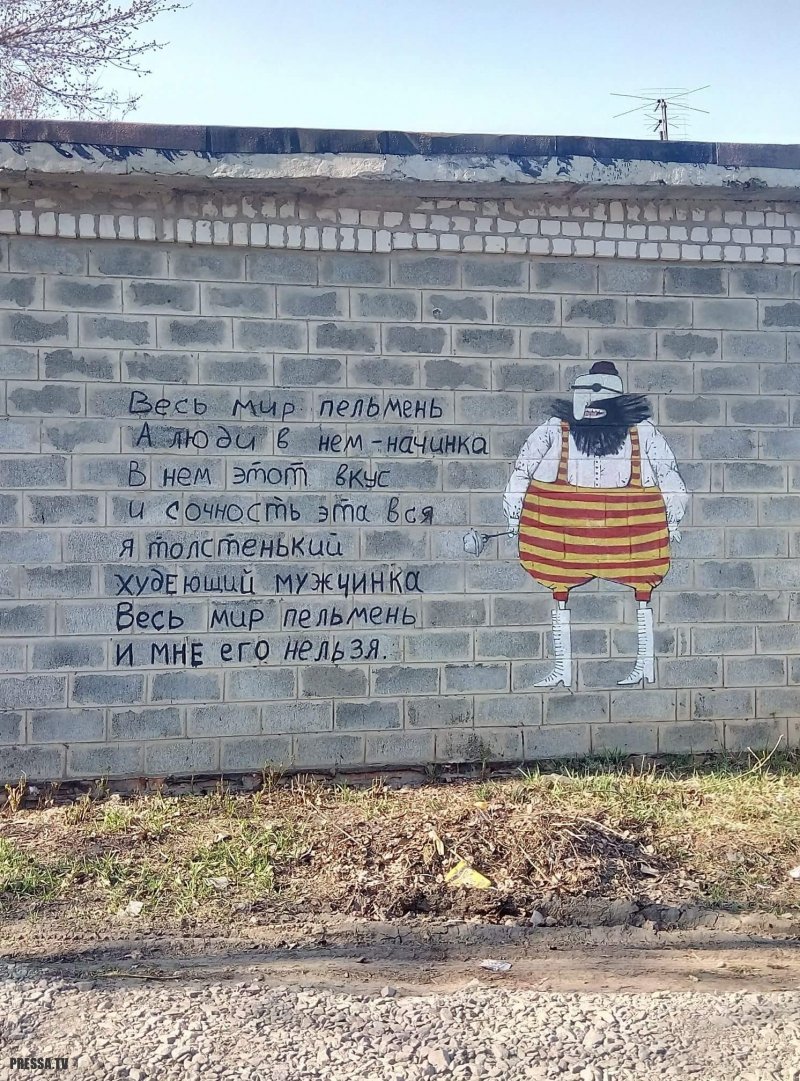 Весь мир пельмень
А люди в нем-начинка
В нем этот вкус
и сочность эта вся
я толстенький
худеющий мужчинка
Весь мир пельмень
и мне его нельзя.
PRESSA.TV